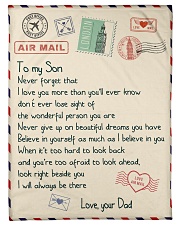 AIR MAIL
LONDON
To my Son
Never forget that
I love you more than you'll ever know
don't ever lose sight of
the wonderful person you are
Never give up on beautiful dreams you have
Believe in yourself as much as I believe in you
When it's too hard to look back
and you're too afraid to look ahead,
look right beside you
I will always be there
Love, your Dad